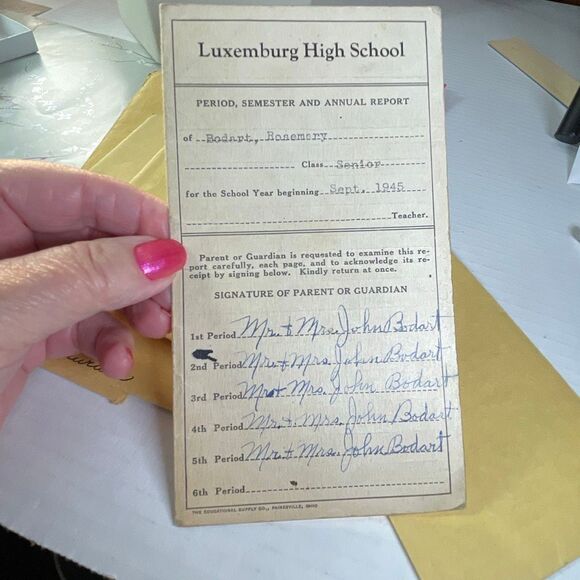 Luxemburg High School
PERIOD, SEMESTER AND ANNUAL REPORT
of Bodart, Rosemary
Class Senior
for the School Year beginning Sept. 1945
Teacher.
Parent or Guardian is requested to examine this re-
port carefully, each page, and to acknowledge its re-
ceipt by signing below. Kindly return at once.
SIGNATURE OF PARENT OR GUARDIAN
1st Period Mr. & Mrs. John Bodart
2nd Period Mr. & Mrs. John Bodart
3rd Period Mr. & Mrs. John Bodart
4th Period Mr. & Mrs. John Bodart
5th Period Mr. & Mrs. John Bodart
6th Period
THE EDUCATIONAL SUPPLY CO., PAINESVILLE, OHIO